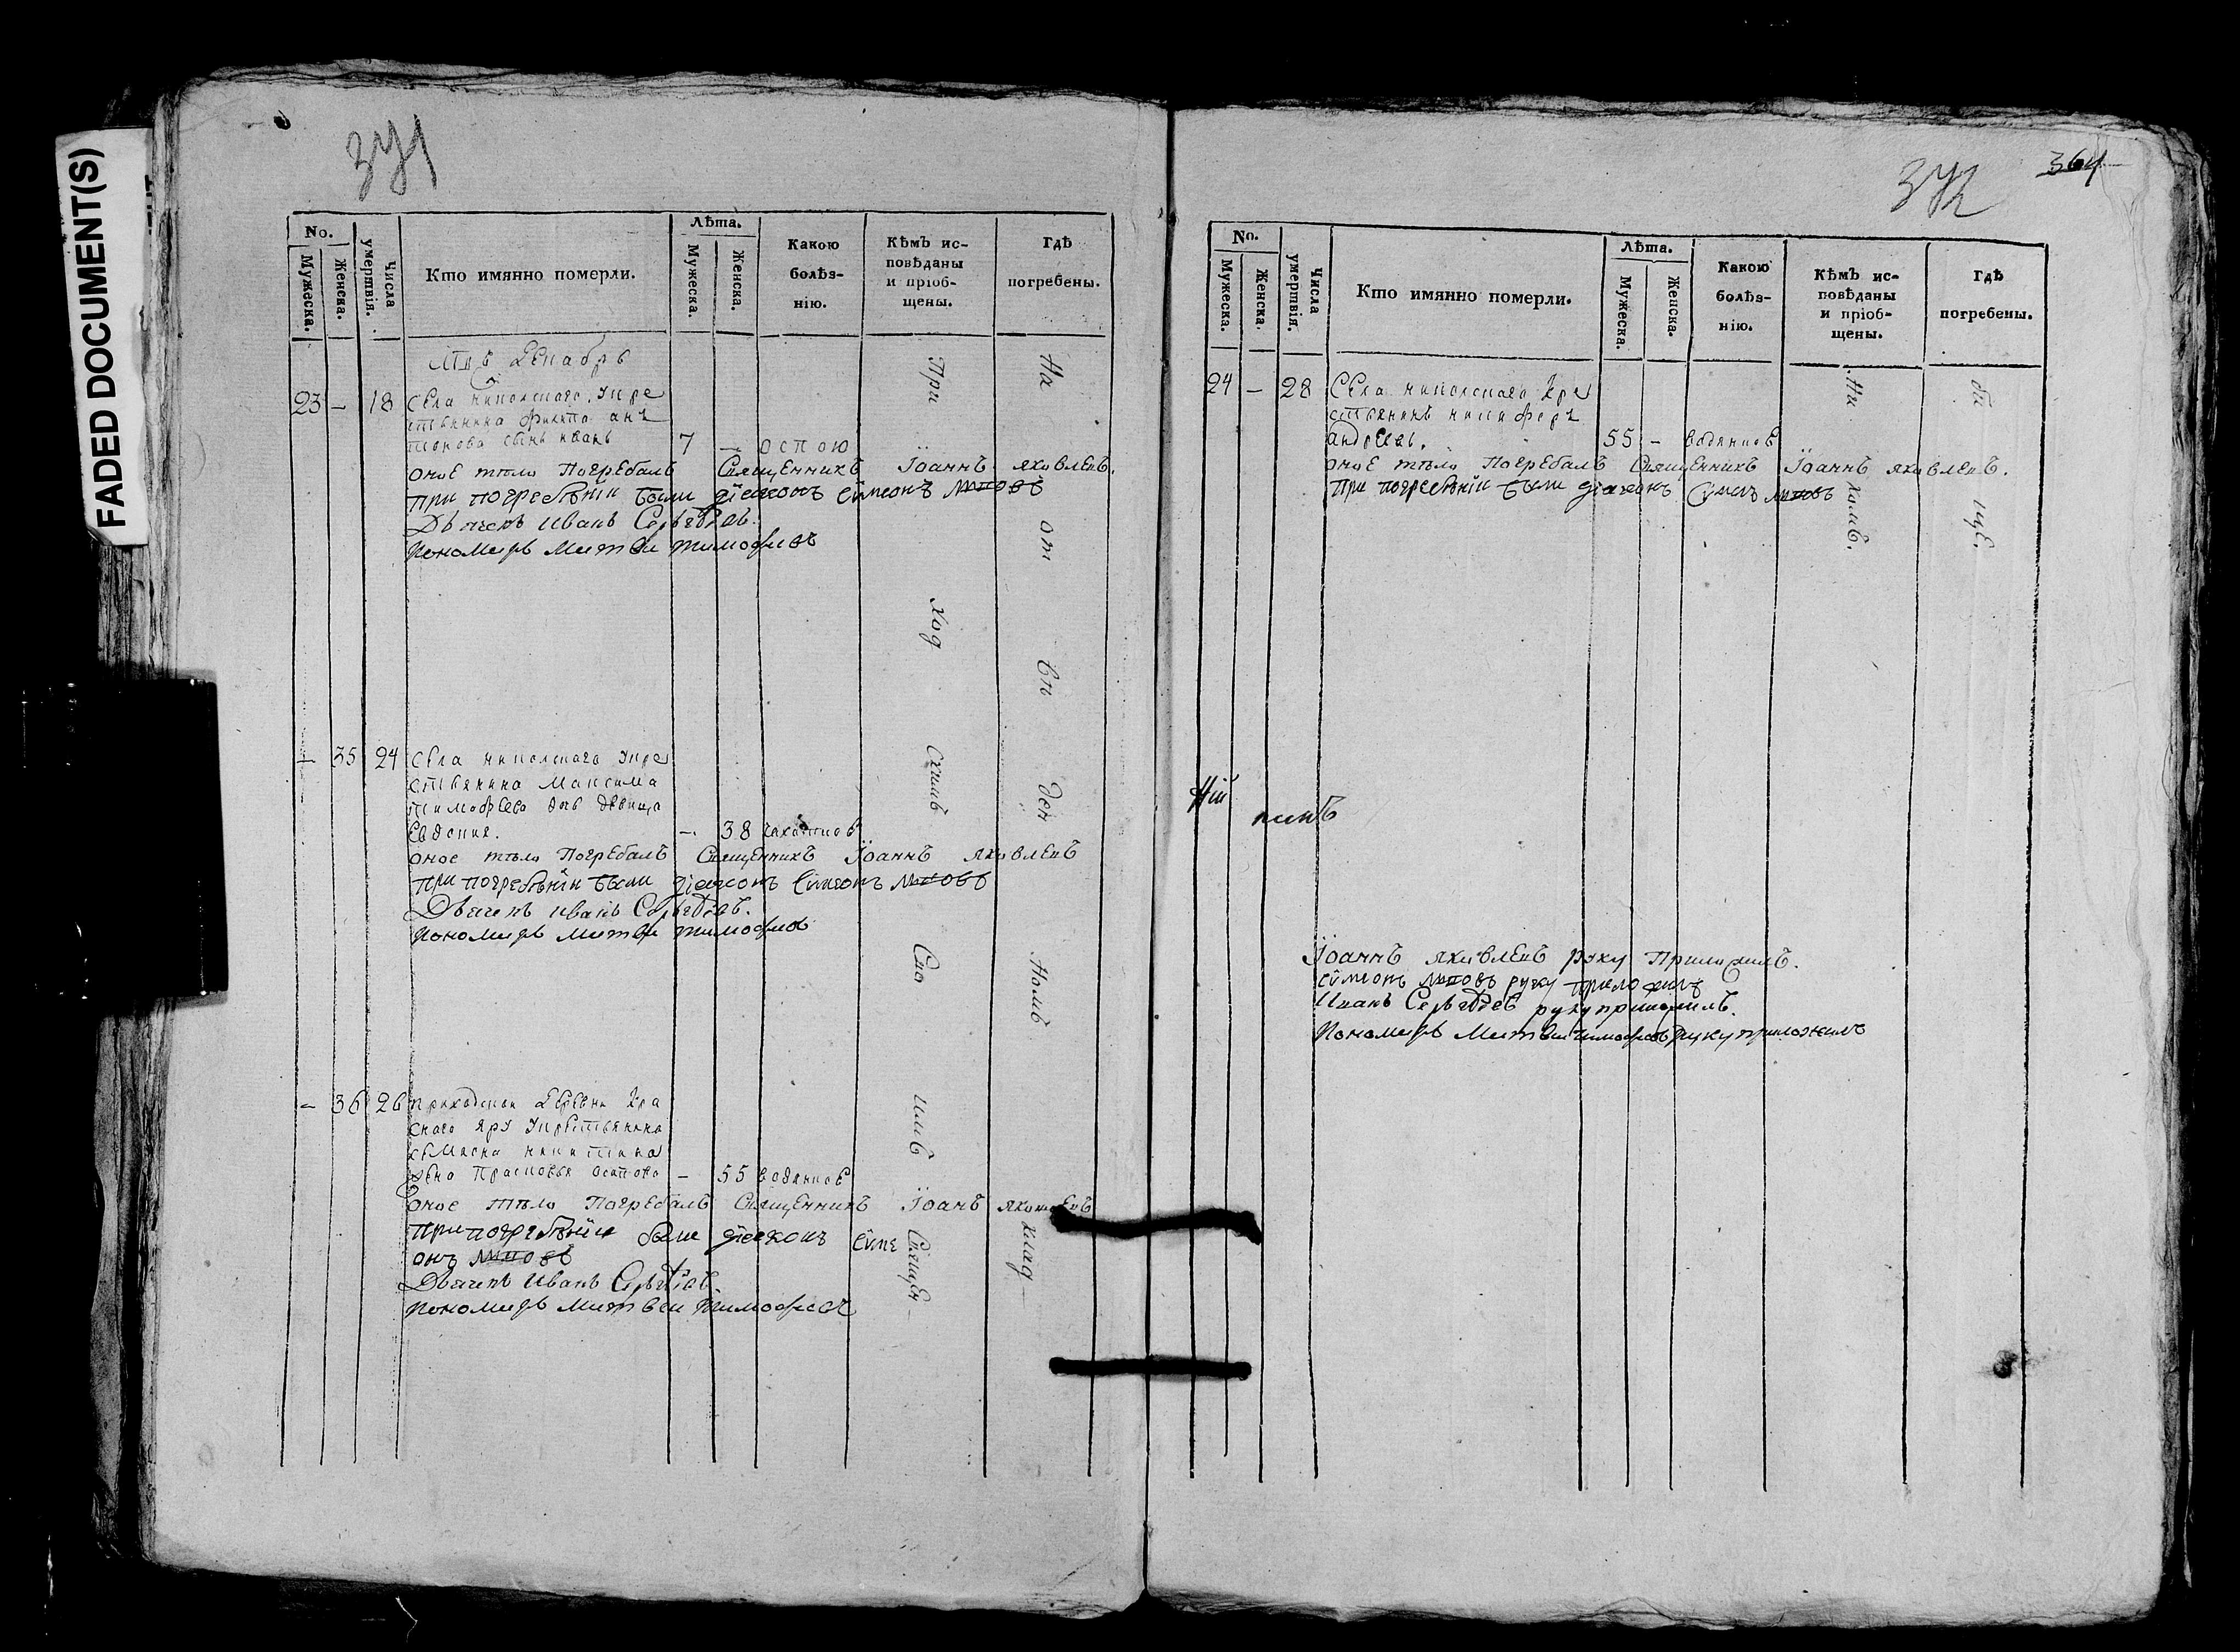 FADED DOCUMENT(S)
371
No.
Мужеска.
Женска.
Числа умертвія.
Кто имянно померли.
Лѣта.
Мужеска.
Женска.
Какою
болѣз-
нію.
Кѣмъ ис-
повѣданы
и пріоб-
щены.
Гдѣ
погребены.
Декабрь
23 – 18 Села никольскаго крe
стьянина филипа ан
тонова сынъ иванъ 7 – оспою
оное тѣло Погребалъ Священникъ Іоаннъ яковлевъ.
при погребѣніи были діаконъ симеонъ
Дьячекъ Иванъ Сергѣевъ.
пономарь матвей тимофеевъ
– 35 24 Села никольскаго кре
стьянина максима
тимофеева дочь дѣвица
Евдокия. – 38
оное тѣло Погребалъ Священникъ Іоаннъ яковлевъ
при погребѣніи были діаконъ симеонъ
Дьячекъ иванъ Сергѣевъ.
пономарь матвей тимофеевъ
– 36 26 приходской деревни кра
снаго яру крестьянина
никитина
жена Прасковья осипова – 55 водяною
оное тѣло Погребалъ Священникъ Іоанъ яковлевъ
при погребѣніи были діаконъ симе
онъ
Дьячекъ Иванъ Сергѣевъ.
пономарь матвеи тимофеевъ
При
ход
скимъ
Сво
имъ
Священ
На
от
вѣ
ден
номъ
клад
372
364
No.
Мужеска.
Женска.
Числа умертвія.
Кто имянно померли.
Лѣта.
Мужеска.
Женска.
Какою
болѣз-
нію.
Кѣмъ ис-
повѣданы
и пріоб-
щены.
Гдѣ
погребены.
24 – 28 Села никольскаго кре
стьянинъ никифоръ
андреевъ. 55 – водяною
оное тѣло Погребалъ Священникъ Іоаннъ яковлевъ.
при погребѣніи были діаконъ
Ни
комъ.
би
щѣ.
Іоаннъ яковлевъ руку Приложилъ.
симеонъ руку приложилъ
Иванъ Сергѣевъ руку приложилъ.
Пономарь Матвеи тимофеевъ руку приложилъ